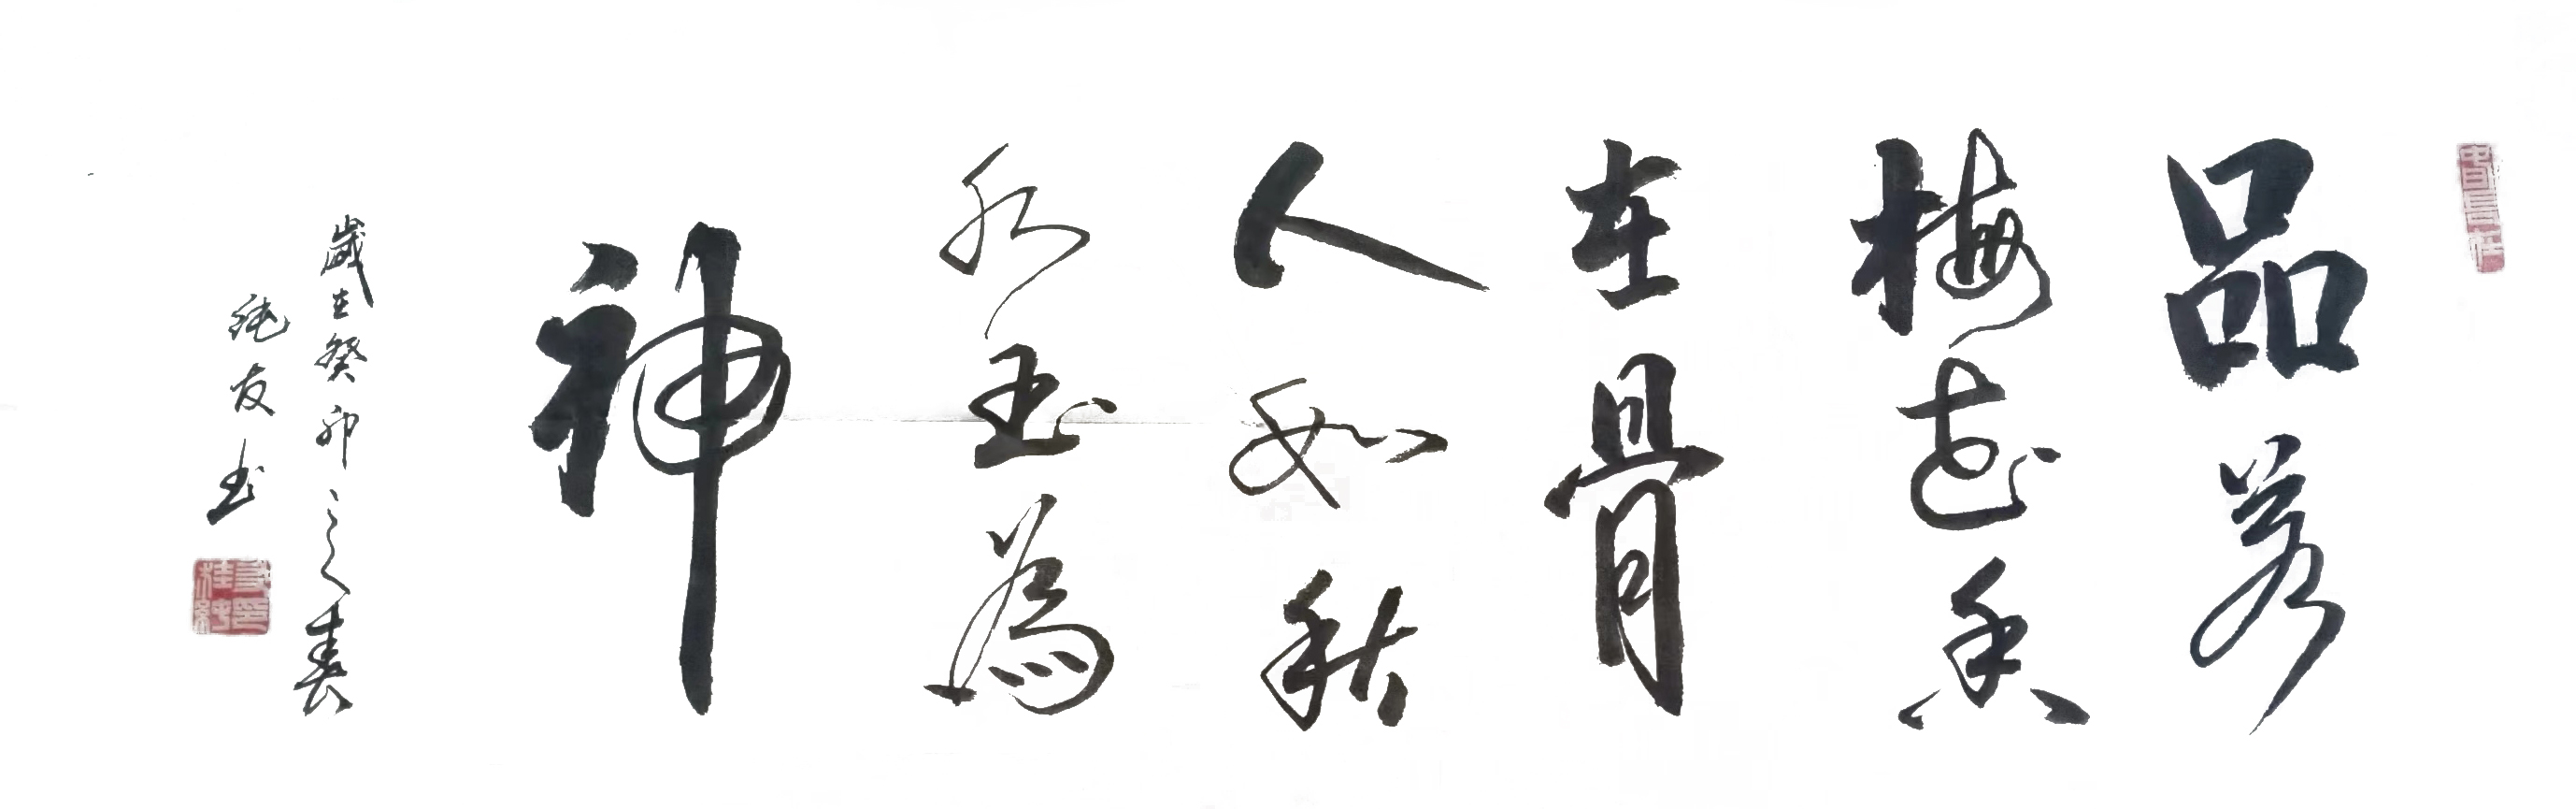 品若
梅花香
在骨
人如秋
水玉為
神
歲在癸卯之春
純友书